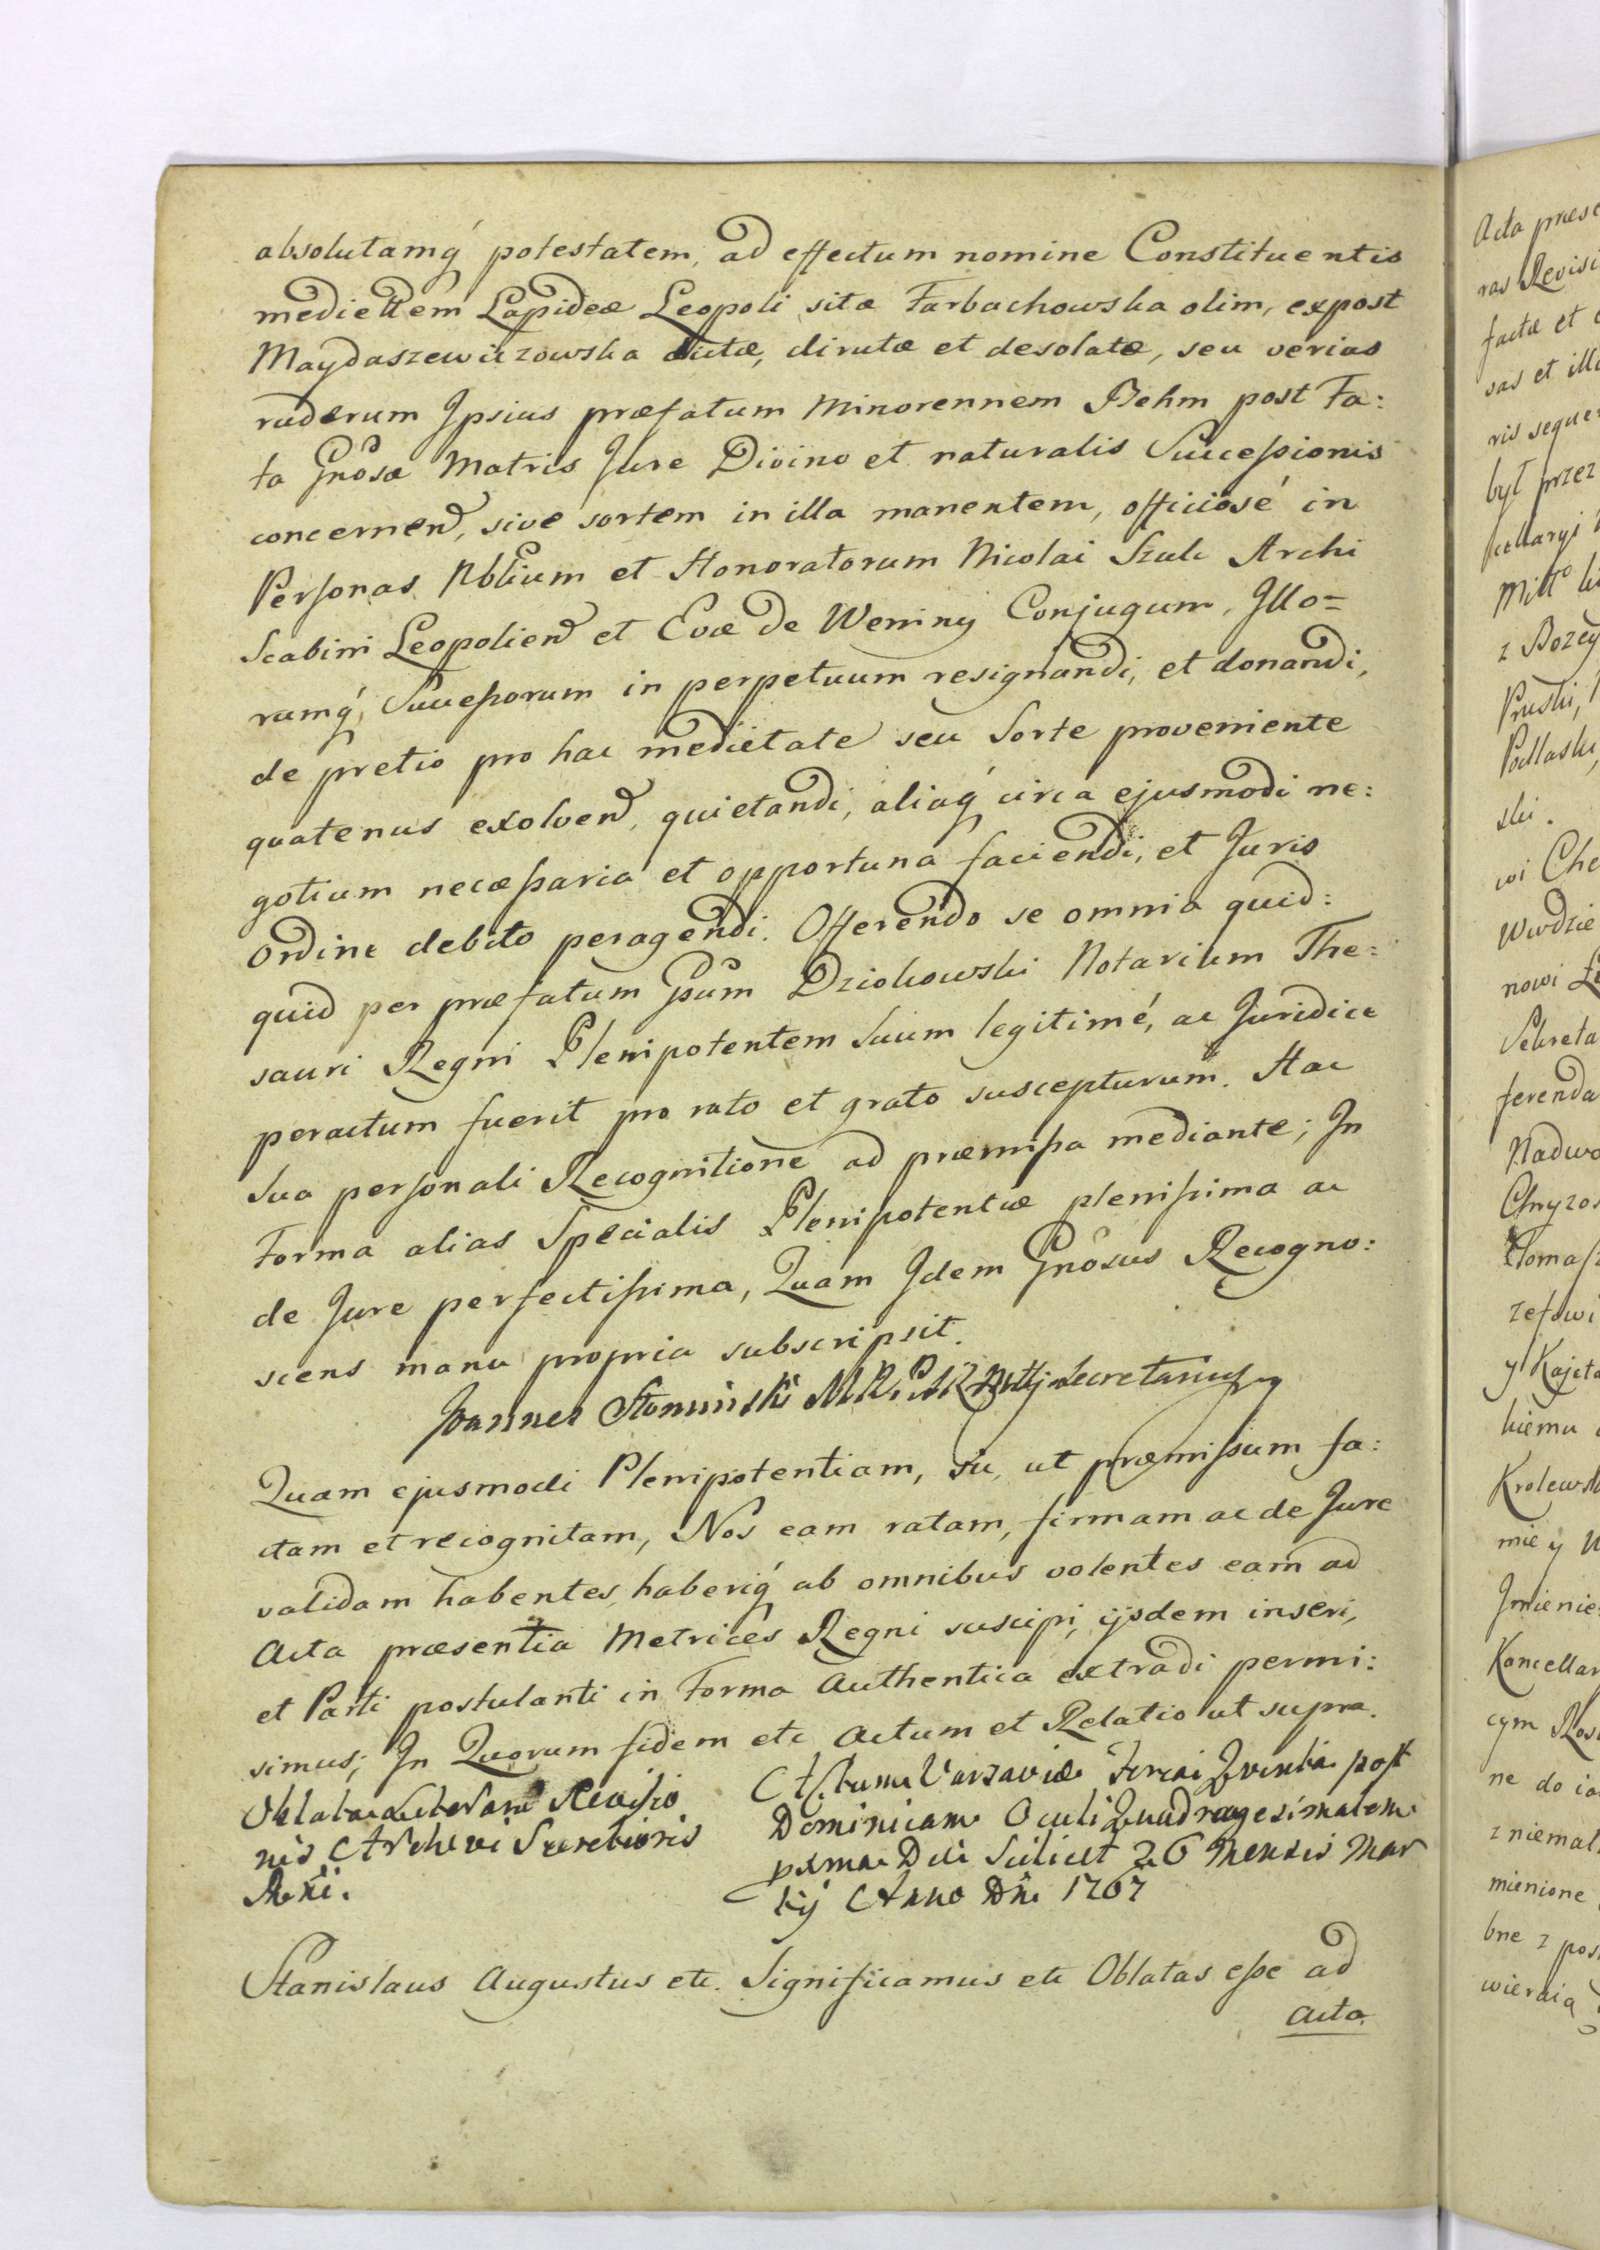 absolutamq́ potestatem, ad effectum nomine Constituentis
mediettem Lapideæ Leopoli sitæ Farbachowska olim, expost
Maydaszewiczowska dictæ, dirutæ et desolatæ, seu verius
ruderum Ipsius præfatum Minorennem Behm post Fa:
ta Gnosæ Matris Jure Divino et naturalis Successionis
concernen, sive sortem in illa manentem, officiosé in
Personas Nblium et Honoratorum Nicolai Szulc Archi
Scabini Leopolien et Evæ de Weniny Conjugum, Illo=
rumq́ Successorum in perpetuum resignandi, et donandi,
de pretio pro hac medietate seu Sorte proveniente
quatenus exolven, quietandi, aliaq́ circa ejusmodi ne:
gotium necæssaria et opportuna faciendi, et Juris
Ordine debito peragendi. Offerendo se omnia quid:
quid per præfatum Gsum Dziokowski Notarium The:
sauri Regni Plenipotentem Suum legitimé, ac Juridice
peractum fuerit pro rato et grato suscepturum. Hac
Sua personali Recognitione ad præmissa mediante; In
Forma alias Specialis Plenipotentiæ plenissima ac
de Jure perfectissima, Quam Idem Gnosus Recogno:
scens manu propria subscripsit.
Joannes Słomiński Secretarius
Quam ejusmodi Plenipotentiam, sic, ut præmissum fa:
ctam et recognitam, Nos eam ratam, firmam ac de Jure
validam habentes, haberiq́ ab omnibus volentes eam ad
Acta præsentia Metrices Regni suscipi, ijsdem inseri,
et Parti postulanti in Forma Authentica extradi permi:
simus; In Quorum fidem etc Actum et Relatio ut supra.
Oblata Literarum Revisio
nis Archivi Secretioris
Rni.
Actum Varsaviæ Feria Quinta post
Dominicam Oculi Quadragesimalem
pxma Die Scilicet 26 Mensis Mar
tij Anno Dni 1767
Stanislaus Augustus etc. Significamus etc Oblatas esse ad
Acta
Acta præse
ras Revisi
factæ et
sas et ill
ris seque
był przez
z Bozey
Pruski,
Podlaski,
ski.
wi Che
nowi
Sekreta
ferenda
Nadwo
Chryzos
Tomas
zefowi
y Kajeta
kiemu
Krolewsk
mie y
Jmienie
Kancellar
cym
ne do
z niemal
mienione
bne z pos
wierdią